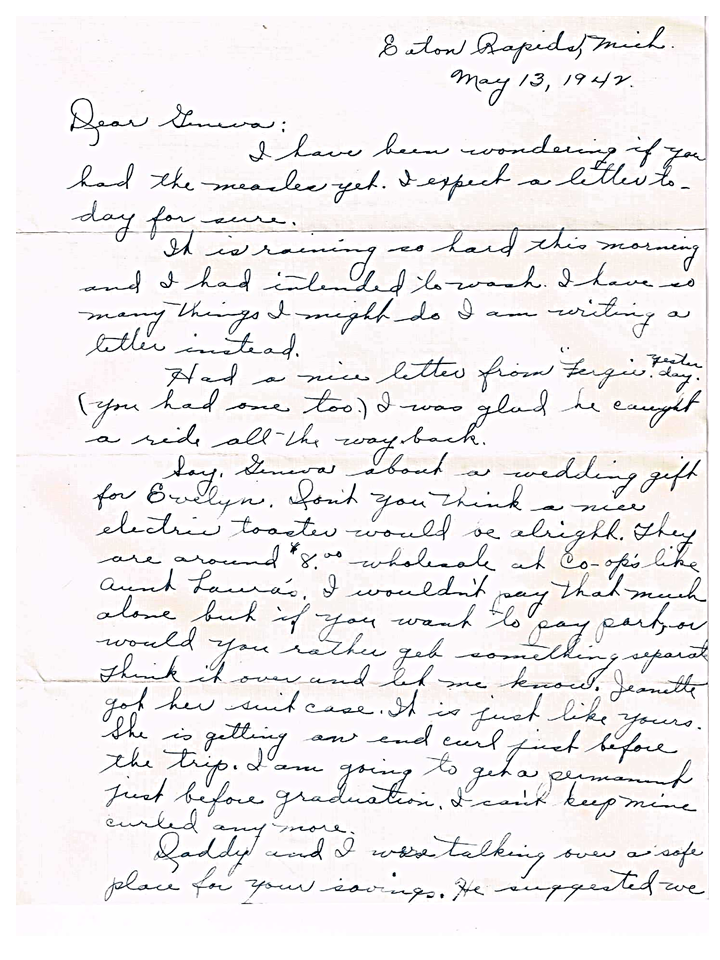 Eaton Rapids, Mich.
May 13, 1942.
Dear Geneva:
I have been wondering if you
had the measles yet. I expect a letter to-
day for sure.
It is raining so hard this morning
and I had intended to wash. I have so
many things I might do I am writing a
letter instead.
Had a nice letter from "Fergie" yesterday.
(you had one too.) I was glad he caught
a ride all the way back.
Say, Geneva about a wedding gift
for Evelyn. Don't you think a nice
electric toaster would be alright. They
are around $8.00 wholesale at Co-op's like
Aunt Laura's. I wouldn't pay that much
alone but if you want to pay part, or
would you rather get something separate
Think it over and let me know. Jeanette
got her suit case. It is just like yours.
She is getting an end curl just before
the trip. I am going to get a permanent
just before graduation. I can't keep mine
curled any more.
Daddy and I were talking over a safe
place for your savings. He suggested we